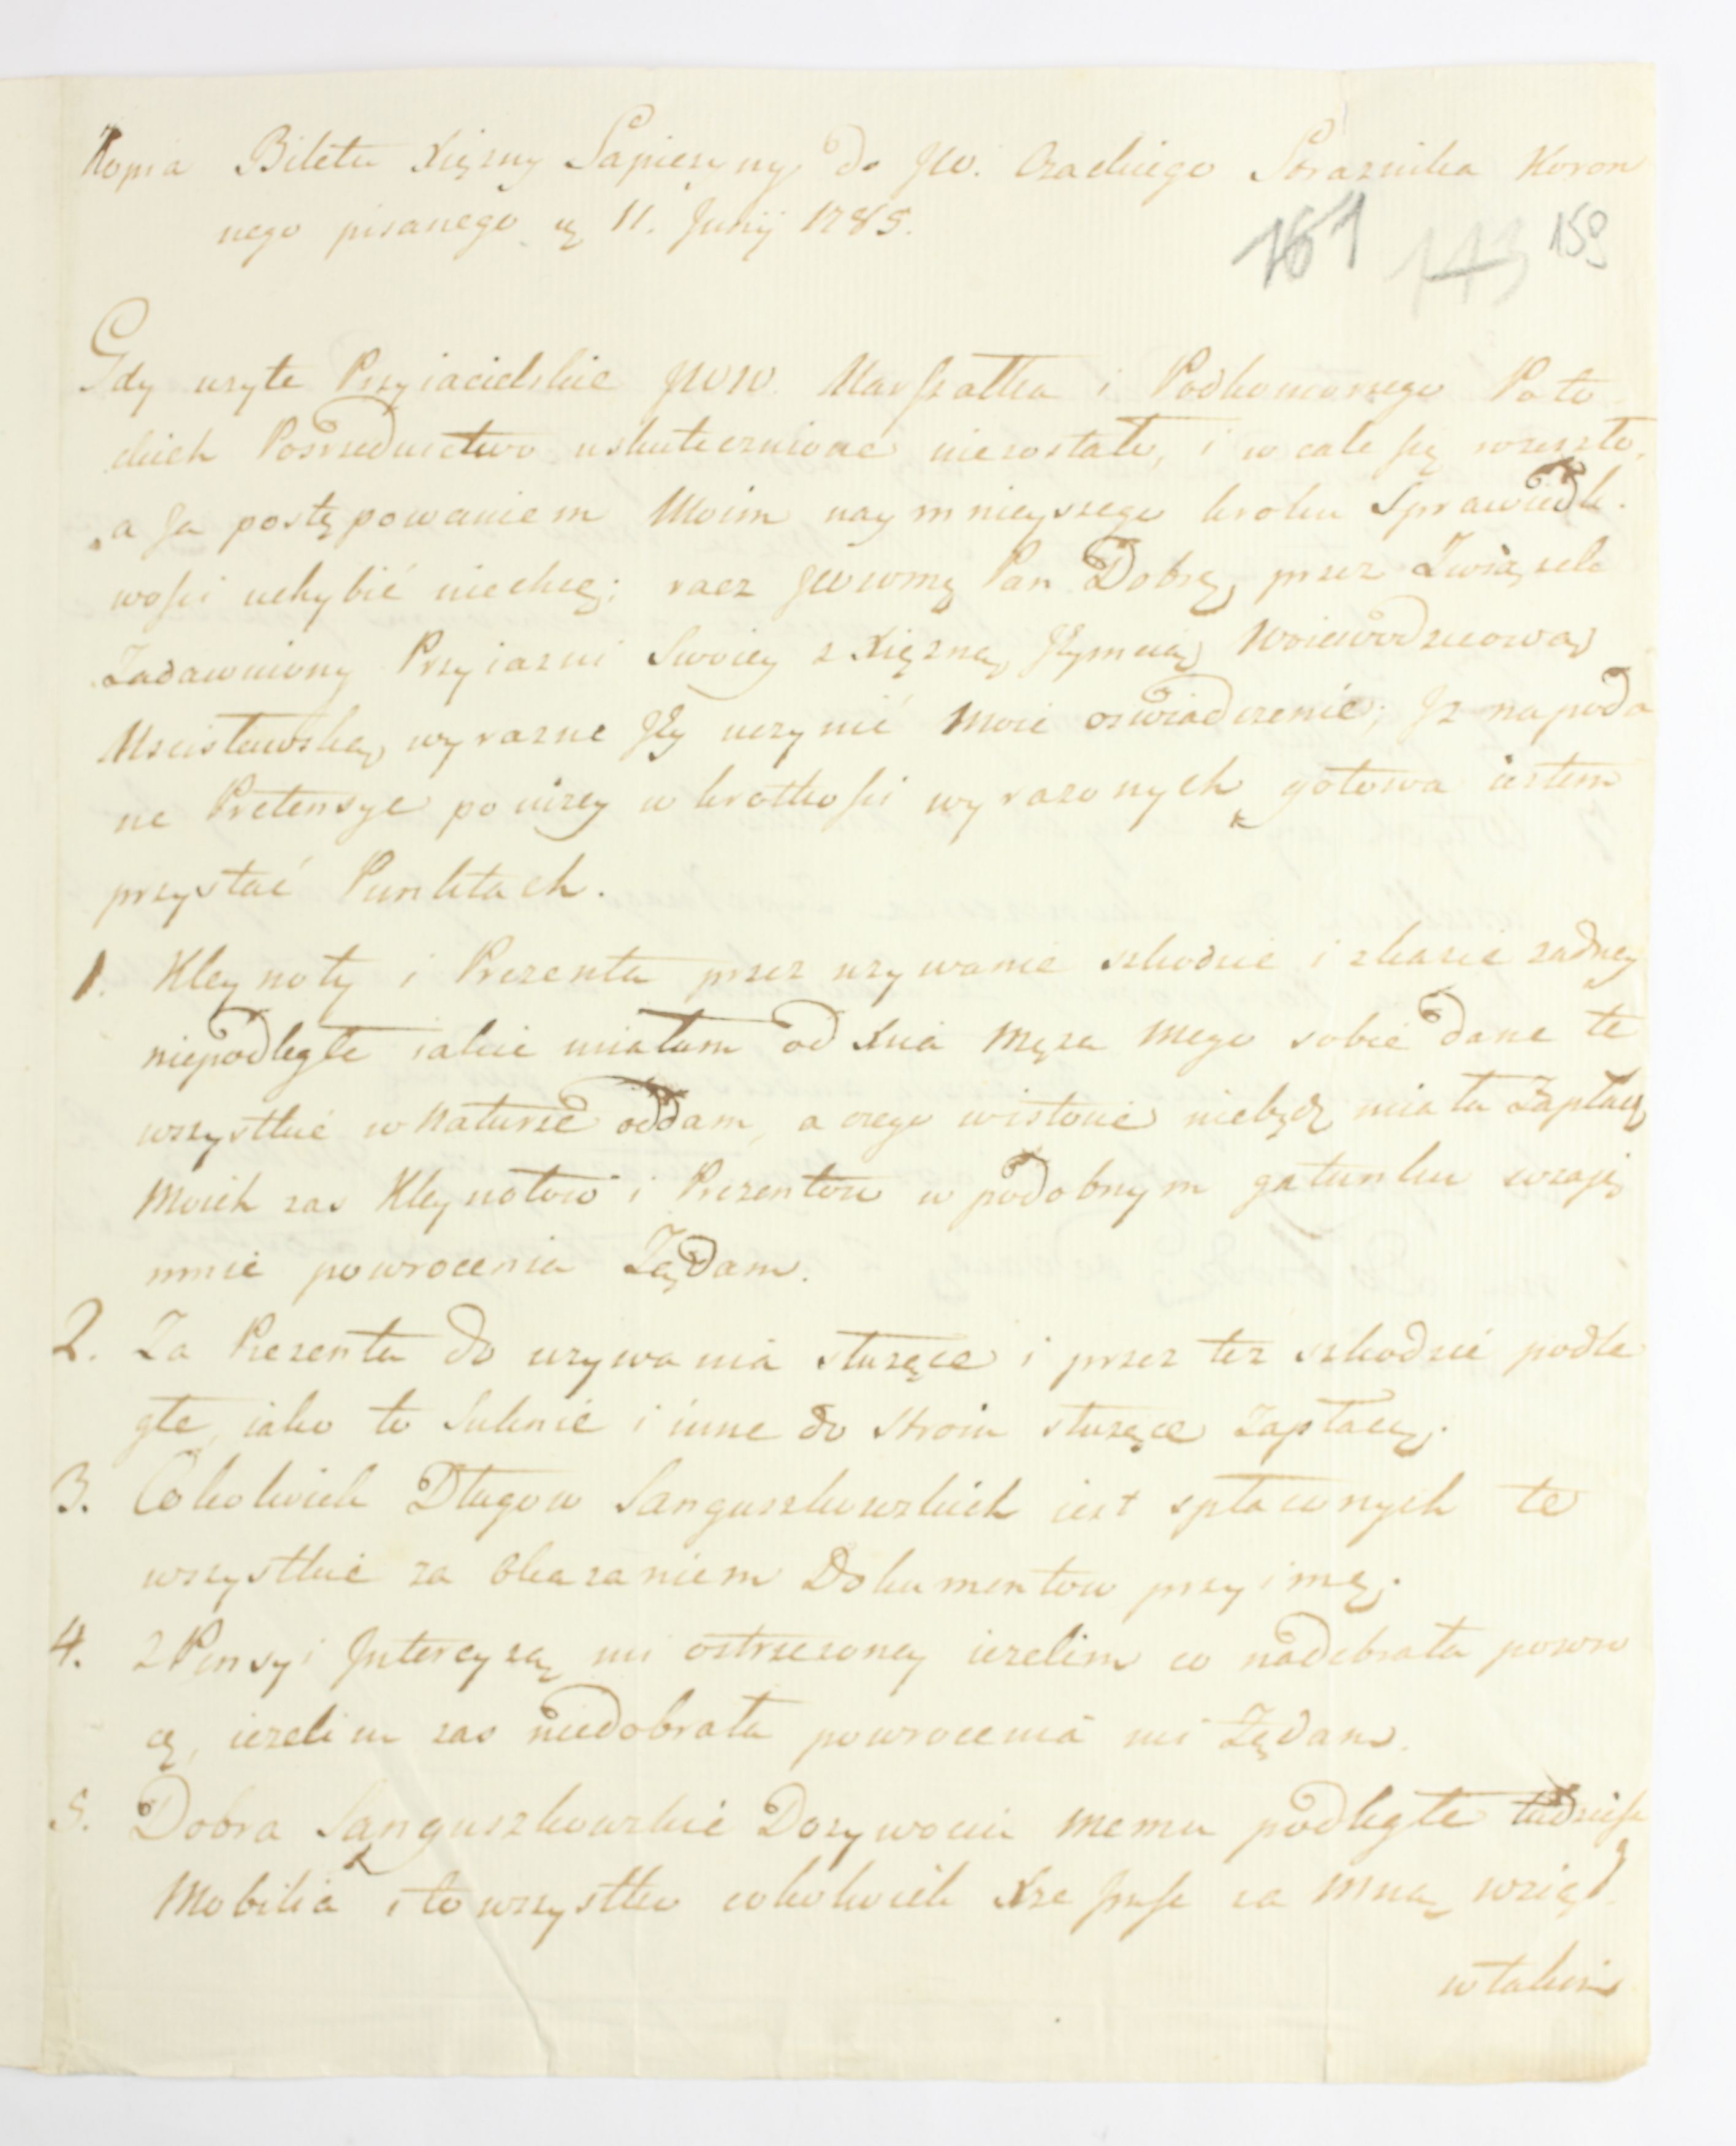 Kopia Biletu Xiężny Sapieżyny do JW. Czackiego Strażnika Koron
nego pisanego 11. Junij 1785.
161 143 159
Gdy użyte Przyiacielskie JWW. Marszałka i Podkomorzego Poto
ckich Posrzednictwo uskutecznione niezostało, i wcale się rozeszło,
a Ja postępowaniem Moim naymnieyszego kroku Sprawiedli
wości uchybić niechcę; racz JWWmę Pan Dobrę, przez Związek
Zadawniony Przyiazni Swoiey z Xiężną Jeymcią Woiewodzicową
Mscisławską, wyrazne Jey uczynić Moie oświadczenie; Jż na poda
ne Pretensye poniżey w krotkości wyrażonych gotowa iestem
przystać Punktach.
1. Kleynoty i Prezenta przez używanie szkodzie i skazie żadney
niepodległe iakie miałam od Xcia Męża mego sobie dane te
wszystkie w Naturze oddam, a czego wistocie niebędę miała Zapłacę
Moich zas Kleynotow i Prezentow w podobnym gatunku wzaje
mnie powrocenia Żądam.
2. Za Prezenta do używania służące i przez tez szkodzie podle
głe, iako to Suknie i inne do Stroiu służące zapłacę.
3. Cokolwiek Długow Sanguszkowskich iest spłaconych te
wszystkie za Okazaniem Dokumentow przyimę.
4. Z Pensyi Jntercyzą mi ostrzeżoney ieżelim co nadebrała powro
cę, ieżelim zas niedobrała powrocenia mi Żądam.
5. Dobra Sanguszkowskie Dożywociu memu podległe tudziesz
Mobilia i to wszystko cokolwiek Xże Jmść za mną wziął
w takim